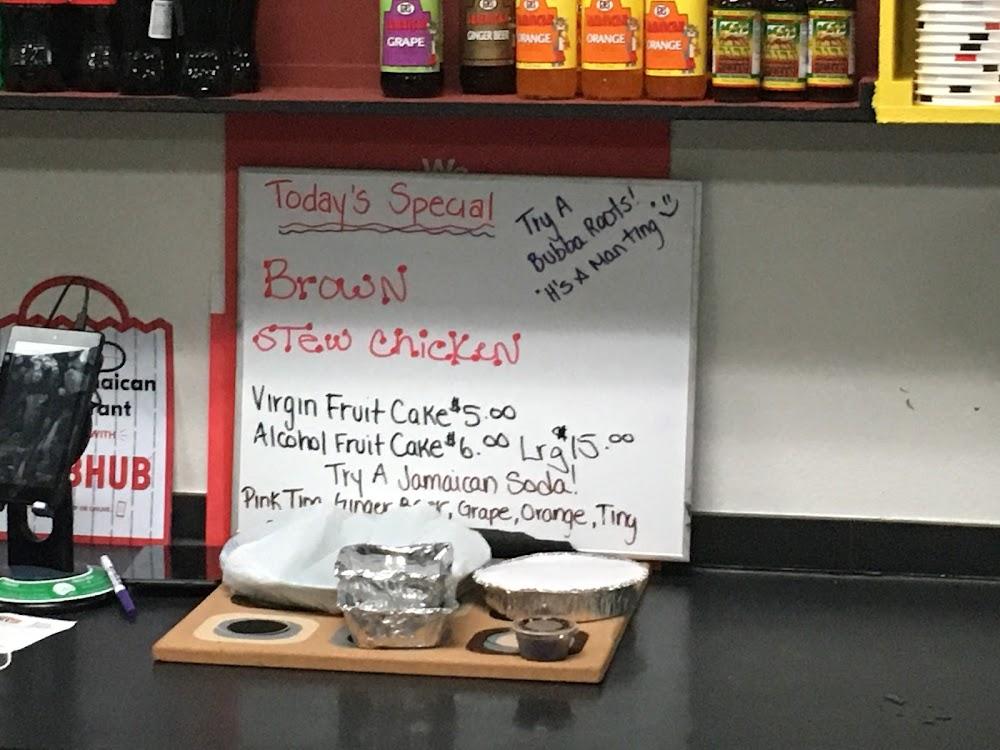 GRAPE
GINGER BEER
ORANGE
ORANGE
ORANGE
We
Today's Special
Try A
Bubba Roots!
It's A Man ting
Brown
Stew Chicken
Virgin Fruit Cake $5.00
Alcohol Fruit Cake $6.00 Lrg $15.00
Try A Jamaican Soda!
Pink Ting, Ginger Beer, Grape, Orange, Ting
aican
ant
WITH
BHUB